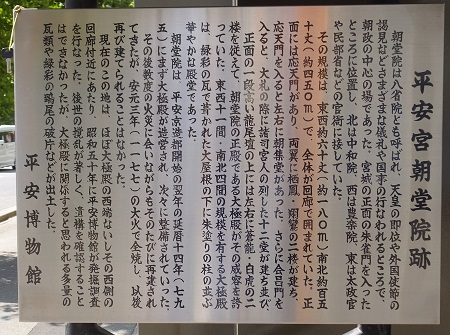 平安宮朝堂院跡
朝堂院は八省院とも呼ばれ、天皇の即位や外国使節の
謁見などさまざまな儀礼や国事の行なわれるところで、
朝政の中心の場であった。宮城の正面の朱雀門を入った
ところに位置し、北は中和院、西は豊楽院、東は太政官
や民部省などの官衙に接していた。
その規模は、東西約六十丈(約一八〇m)、南北約百五
十丈(約四五〇m)で、全体が回廊で囲まれていた。正
面には応天門があり、両翼に栖鳳・翔鸞の二楼が建ち、
応天門を入ると左右に朝集堂があった。さらに会昌門を
入ると、大礼の際に諸司官人の列した十二堂が建ち並び、
正面の一段高い龍尾壇の上には左右に蒼龍・白虎の二
楼を従えて、朝堂院の正殿である大極殿がその威容を誇
っていた。東西十一間・南北四間の規模を有する大極殿
は、緑彩の瓦で葺かれた大屋根の下に朱塗りの柱の並ぶ
華やかな殿堂であった。
朝堂院は、平安京造都開始の翌年の延暦十四年(七九
五)にまず大極殿が造営され、次々に整備されていった。
その後数度の火災に会いながらもそのたびに再建され
てきたが、安元三年(一一七七)の大火で全焼し、以後
再び建てられることはなかった。
現在のこの地は、ほぼ大極殿の西端ないしその西側の
回廊付近にあたり、昭和五十年に平安博物館が発掘調査
を行なった。後世の攪乱が著しく、遺構を確認すること
はできなかったが、大極殿に関係すると思われる多量の
瓦類や緑彩の鴟尾の破片などが出土した。
平安博物館